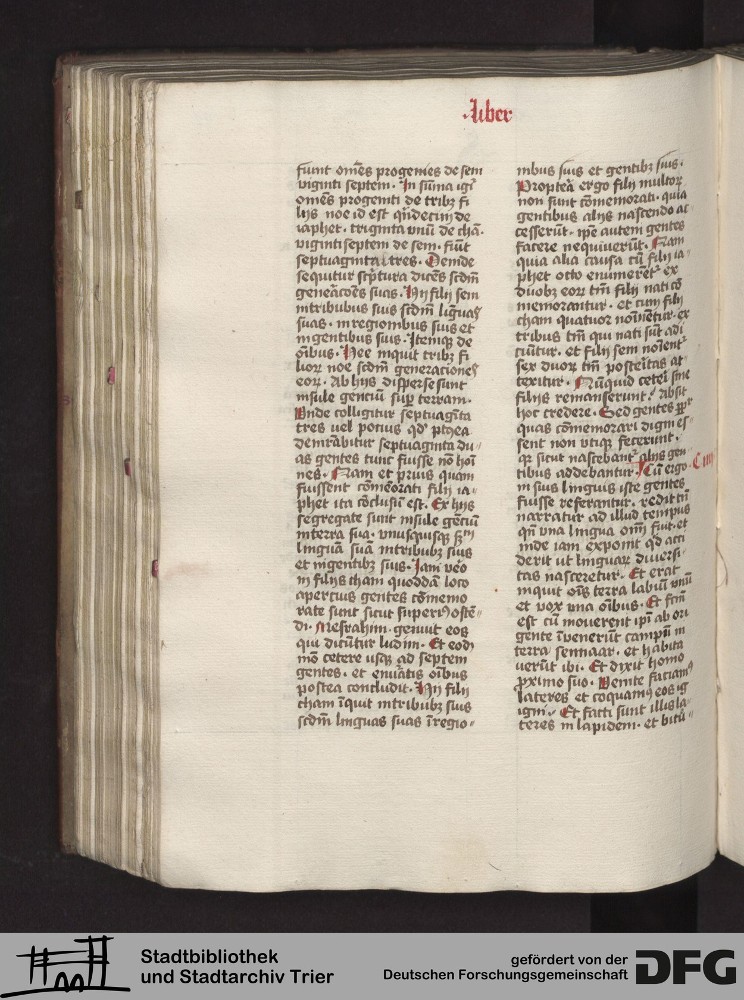 .Liber
fiunt om̄es progenies de sem
viginti septem. In sūma igr̄
om̄es progeniti de tribꝫ fi
lijs noe id est qn̄decim de
iaphet. triginta vnū de chā.
viginti septem de sem. fiūt
septuaginta tres. Deinde
sequitur scp̄tura dicēs scdm̄
geneac̄oēs suas. Hij filij sem
in tribubus suis scdm̄ liguas
suas. in regionibus suis et
in gentibus suis. Itemqꝫ de
om̄ibus. Hee inquit tribꝫ fi
liorꝫ noe scdm̄ generationes
eorꝫ. Ab hijs disperse sunt
insule gentiū sup̄ terram.
Vnde colligitur septuagīta
tres vel potius qd̄ postea
demr̄abitur septuaginta du
as gentes tunc fuisse nō hoī
nes. Nam et prius quam
fuissent cōmeorati filij ia
phet ita cōclusū est. Ex hijs
segregate sunt insule gēciū
in terra sua. vnusquisqꝫ scdm̄
linguā suā in tribubꝫ suis
et in gentibꝫ suis. Iam vēo
in filijs cham quoddā loco
apertius gentes cōmemo
rate sunt sicut superiꝰ ostē
di. Mesrahim. genuit eos
qui dicūtur ludim. Et eodē
mō cetere usqꝫ ad septem
gentes. et enuātis oībus
postea concludit. Hij filij
cham īquit in tribubꝫ suis
scdm̄ linguas suas ī regio
nibus suis et gentibꝫ suis.
Proptea ergo filij multorꝫ
non sunt cōmemorati. quia
gentibus alijs nascendo ac
cesserūt. ip̄e autem gentes
facere nequiuerūt. Nam
quia alia causa cū filij ia
phet octo enumerēt̄ ex
duobꝫ eorꝫ tm̄ filij nati cō
memorantur. et cum filij
cham quatuor noīnētur ex
tribus tm̄ qui nati sūt adi
ciūtur. et filij sem noīent̄
sex duorꝫ tm̄ posteītas at
texitur. Nūquid ceteī sine
filijs remanserunt? absit
hoc credere. Sed gentes ꝓpr
quas cōmemorari digni es
sent non vtiqꝫ fecerunt.
qꝛ sicut nascebant̄ alijs gen
tibus addebantur. Cū ergo C iiij
in suis linguis iste gentes
fuisse referantur. redit tn̄
narratur ad illud tempus
qn̄ vna lingua om̄i fuit. et
inde iam exponit qd acci
derit ut linguarꝫ diuersi
tas nasceretur. Et erat
inquit oīs terra labiū vnū
et vox vna oībus. Et fcm̄
est cū mouerent ip̄i ab ori
gente īvenerūt campū in
terra sennaar. et habita
uerūt ibi. Et dixit homo
ꝓximo suo. Venite faciamꝰ
lateres et coquamꝰ eos ig
igni. Et facti sunt illis la
teres in lapidem. et bitū
Stadtbibliothek
und Stadtarchiv Trier
gefördert von der
Deutschen Forschungsgemeinschaft
DFG